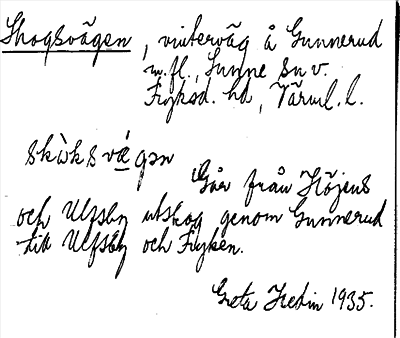 Skogsvägen, vinterväg å Gunnerud
m.fl., Sunne sn v.
Fryksd. hd, Värml. l.
skò̀ksvǽgən
Går från Höjens
och Ulfsby utskog genom Gunnerud
till Ulfsby och Fryken.
Greta Hedin 1935.